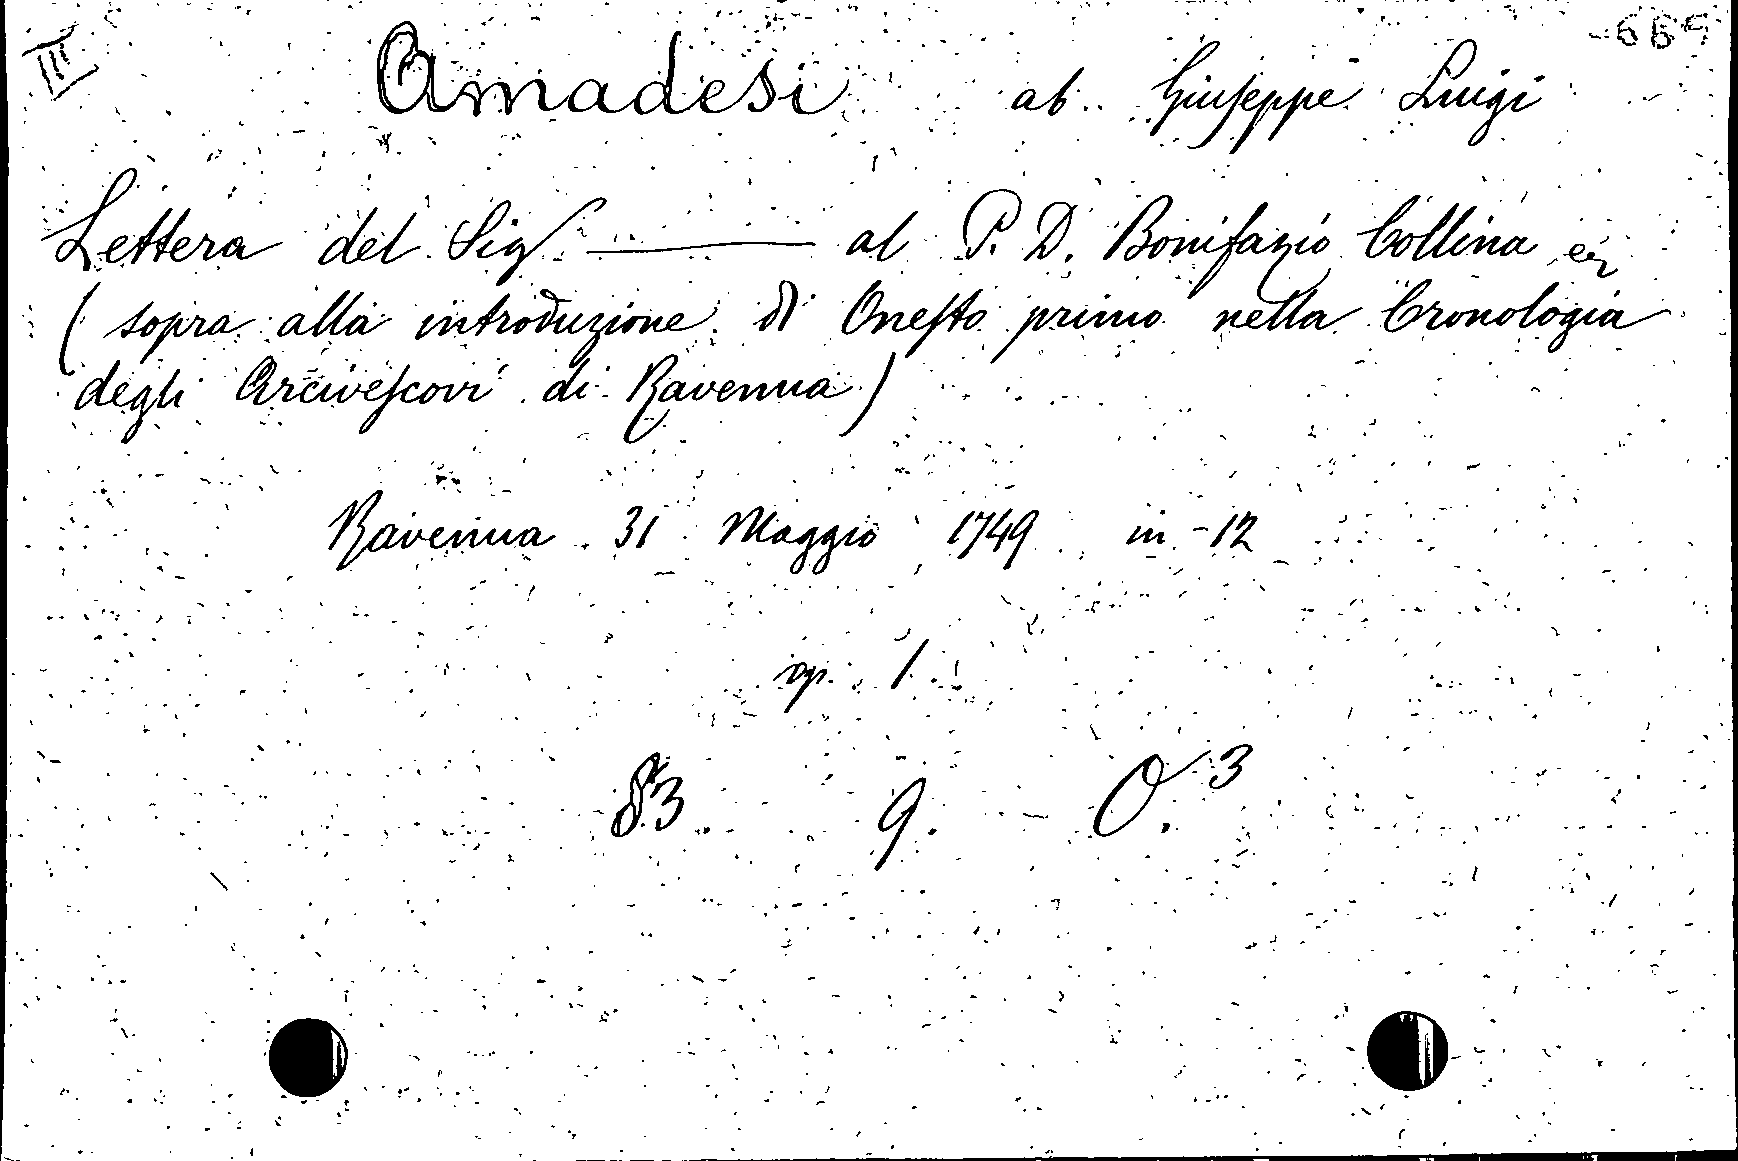 III 669
Amadesi ab. Giuseppe Luigi
Lettera del Sigr. ——— al P. D. Bonifazio Collina
( sopra alla introduzione di Onesto primo nella Cronologia
degli Arcivescovi di Ravenna )
Ravenna 31 Maggio 1749 in-12
op. 1.
83 9. O.3